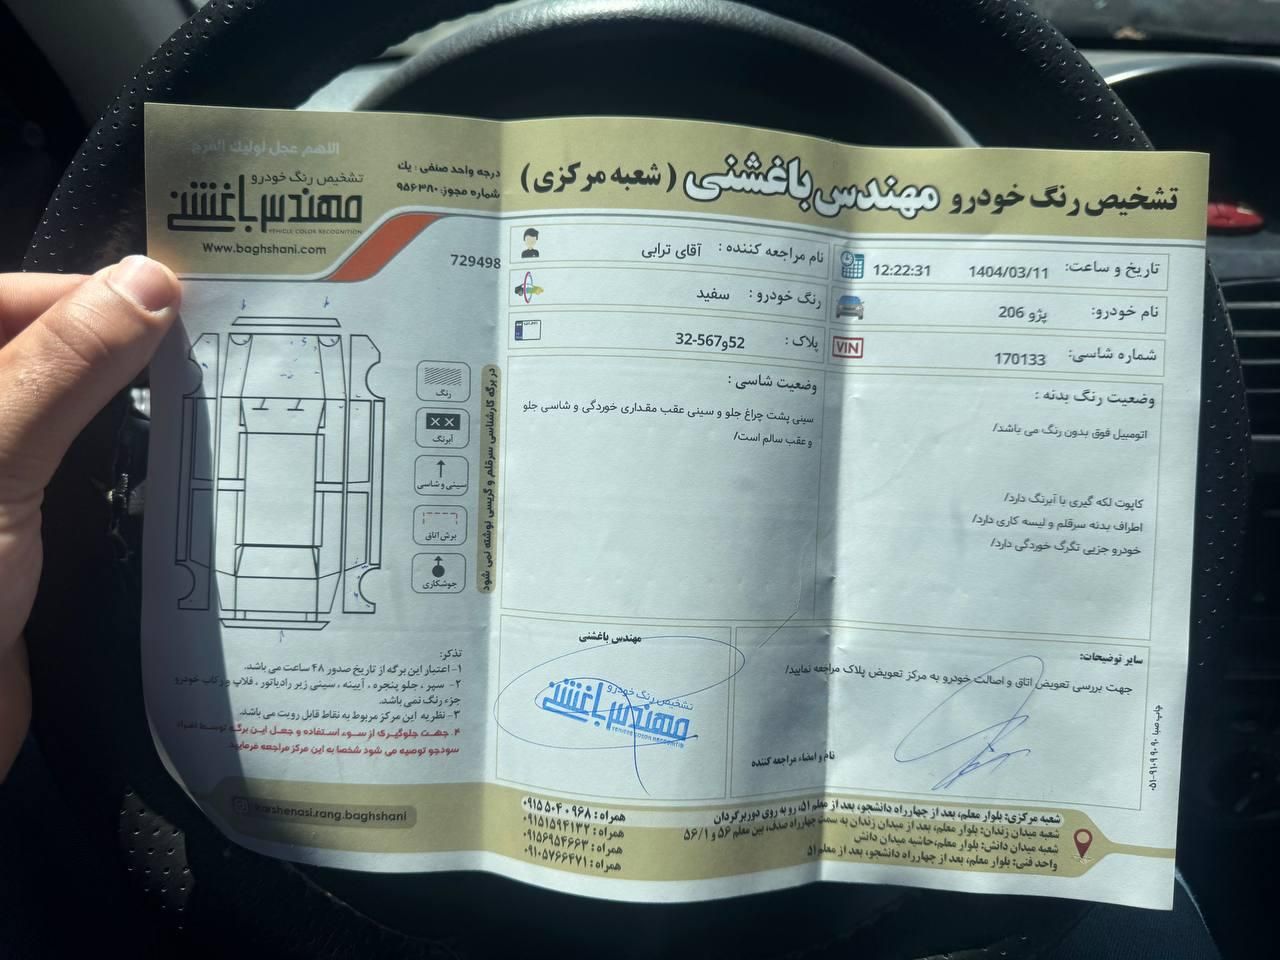 تشخیص رنگ خودرو مهندس باغشنی ( شعبه مرکزی )
اللهم عجل لولیک الفرج
تشخیص رنگ خودرو
مهندس باغشنی
VEHICLE COLOR RECOGNITION
Www.baghshani.com
درجه واحد صنفی : یک
شماره مجوز: ۹۵۶۳۸۰
729498
تاریخ و ساعت: 1404/03/11 12:22:31
نام مراجعه کننده : آقای ترابی
نام خودرو: پژو 206
رنگ خودرو : سفید
شماره شاسی: 170133
VIN
پلاک : 52و567-32
وضعیت رنگ بدنه :
اتومبیل فوق بدون رنگ می باشد/
کاپوت لکه گیری با آبرنگ دارد/
اطراف بدنه سرقلم و لیسه کاری دارد/
خودرو جزیی تگرگ خوردگی دارد/
وضعیت شاسی :
سینی پشت چراغ جلو و سینی عقب مقداری خوردگی و شاسی جلو
و عقب سالم است/
رنگ
آبرنگ
سینی و شاسی
برش اتاق
جوشکاری
در برگه کارشناسی سرقلم و گریسی نوشته نمی شود
سایر توضیحات:
جهت بررسی تعویض اتاق و اصالت خودرو به مرکز تعویض پلاک مراجعه نمایید/
نام و امضاء مراجعه کننده
مهندس باغشنی
تشخیص رنگ خودرو
مهندس باغشنی
VEHICLE COLOR RECOGNITION
تذکر:
۱- اعتبار این برگه از تاریخ صدور ۴۸ ساعت می باشد.
۲- سپر ، جلو پنجره ، آیینه ، سینی زیر رادیاتور ، فلاپ و رکاب خودرو
جزء رنگ نمی باشد.
۳- نظریه این مرکز مربوط به نقاط قابل رویت می باشد.
۴. جهت جلوگیری از سوء استفاده و جعل این برگه توسط افراد
سودجو توصیه می شود شخصا به این مرکز مراجعه فرمایید
karshenasi.rang.baghshani
همراه : ۰۹۱۵۵۰۴۰۹۶۸
همراه : ۰۹۱۵۱۵۹۴۱۳۲
همراه : ۰۹۱۵۶۹۵۴۶۶۳
همراه : ۰۹۱۰۵۷۶۶۴۷۱
شعبه مرکزی: بلوار معلم، بعد از چهارراه دانشجو، بعد از معلم ۵۱، رو به روی دوربرگردان
شعبه میدان زندان: بلوار معلم، بعد از میدان زندان به سمت چهارراه صدف، بین معلم ۵۶ و ۵۶/۱
شعبه میدان دانش: بلوار معلم،حاشیه میدان دانش
واحد فنی: بلوار معلم، بعد از چهارراه دانشجو، بعد از معلم ۵۱
چاپ صبا ۹۰۹۰ ۹۱۰۹-۰۵۱